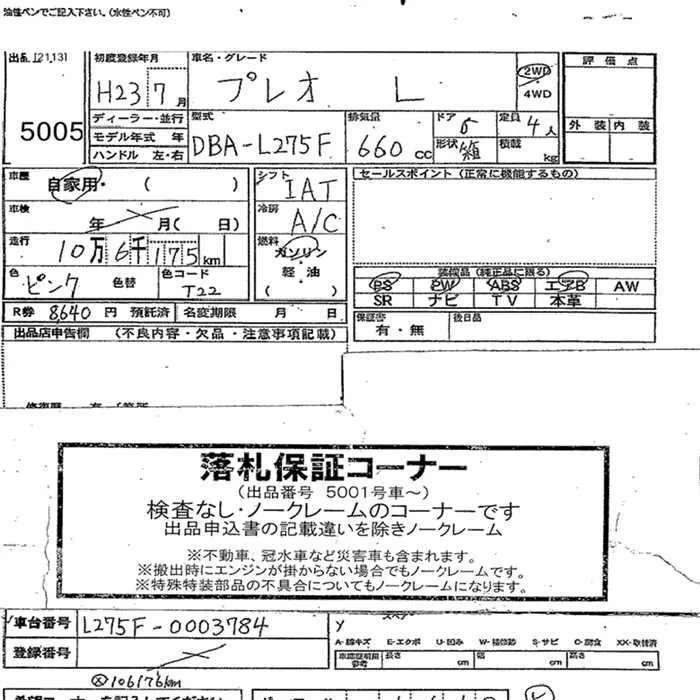 油性ペンでご記入下さい。(水性ペン不可)
出品 (2113)
5005
初度登録年月
H23 7月
車名・グレード
プレオ L
2WD
4WD
評価点
外装 内装
ディーラー・並行
モデル年式 年
ハンドル 左・右
型式
DBA-L275F
排気量
660 cc
ドア
5
定員
4人
形状
積載
kg
車歴
自家用・( )
シフト
IAT
セールスポイント (正常に機能するもの)
車検
年 月( 日)
冷房
A/C
走行
10万6千175km
燃料
ガソリン
軽・油
( )
色
ピンク
色替
色コード
T22
装備品 (純正品に限る)
PS PW ABS エアB AW
SR ナビ TV 本革
R券 8640 円 預託済
名変期限 月 日
保証書
有・無
後日品
出品店申告欄 (不良内容・欠品・注意事項記載)
落札保証コーナー
(出品番号 5001号車~)
検査なし・ノークレームのコーナーです
出品申込書の記載違いを除きノークレーム
※不動車、冠水車など災害車も含まれます。
※搬出時にエンジンが掛からない場合でもノークレームです。
※特殊特装部品の不具合についてもノークレームになります。
車台番号 L275F-0003784
登録番号
スペア
A-線キズ E-エクボ U-凹み W-補修跡 S-サビ C-腐食 XX-取替済
車庫証明用参考
長さ cm 幅 cm 高さ cm
106176km